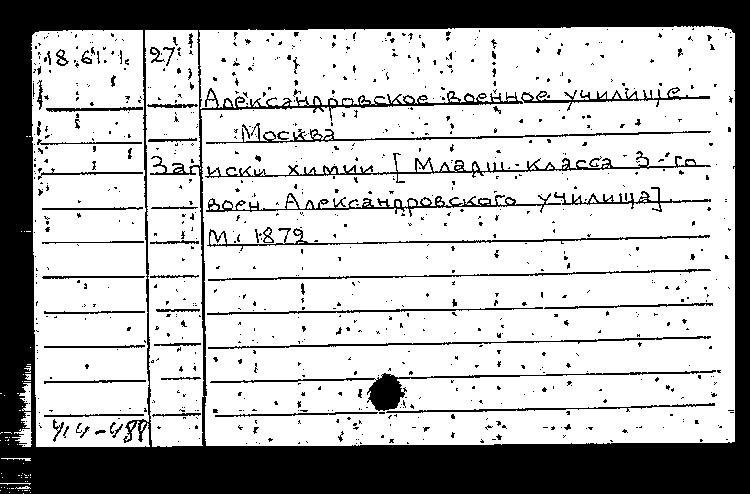 18.61.1.27
Александровское военное училище.
Москва
Записки химии [Младш. класса 3-го
воен. Александровского училища].
М., 1872.